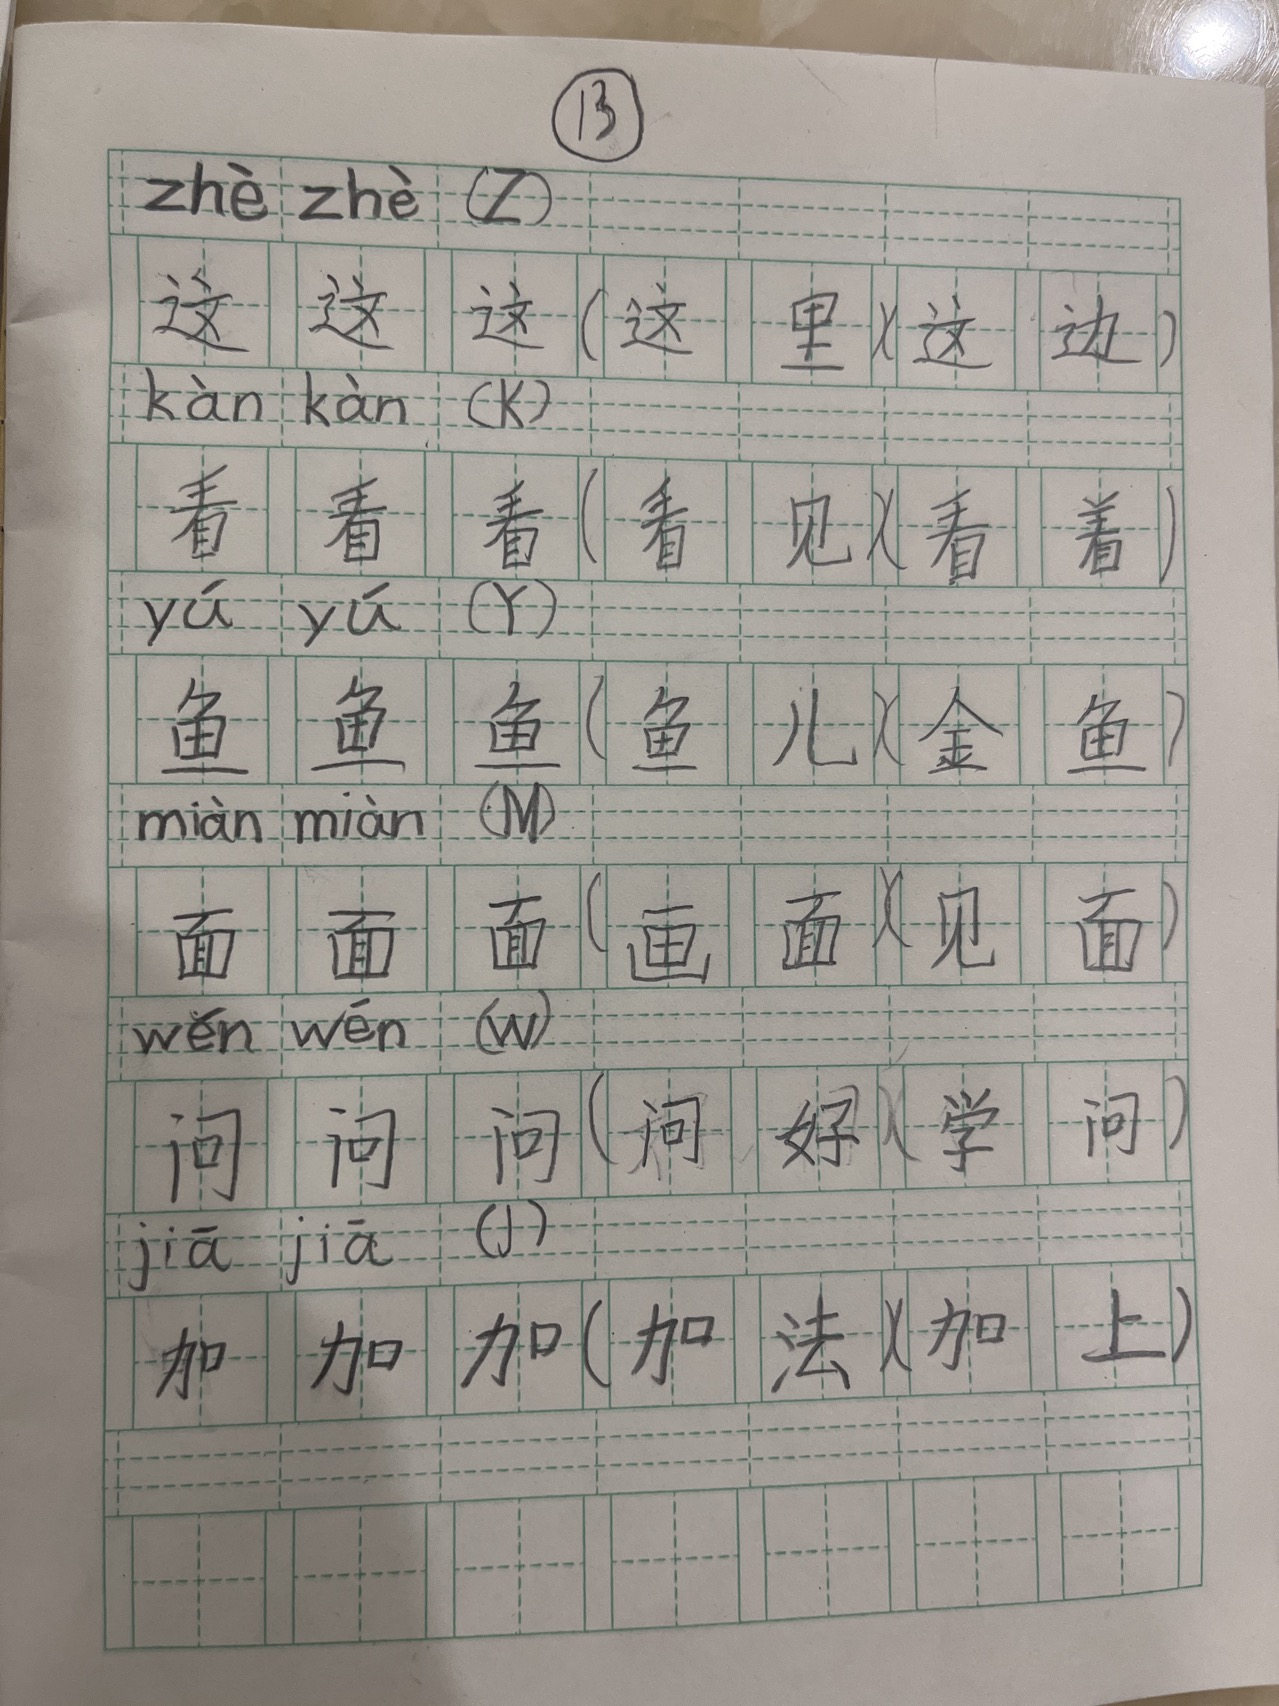 13
zhè zhè (Z)
这 这 这 (这 里)(这 边)
kàn kàn (K)
看 看 看 (看 见)(看 着)
yú yú (Y)
鱼 鱼 鱼 (鱼 儿)(金 鱼)
miàn miàn (M)
面 面 面 (画 面)(见 面)
wén wén (W)
问 问 问 (问 好)(学 问)
jiā jiā (J)
加 加 加 (加 法)(加 上)